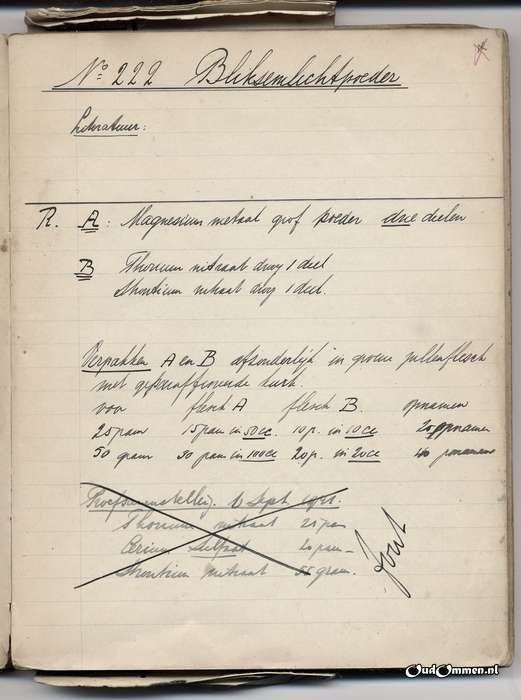 No 222 Bliksemlichtpoeder
Literatuur:
R. A: Magnesium metaal grof poeder drie deelen
B Thorium nitraat droog 1 deel
Strontium nitraat droog 1 deel.
Verpakken A en B afzonderlijk in groene pillenflesch
met geparaffineerde kurk.
voor flesch A flesch B. opnamen
25 gram 15 gram in 50 cc 10 gr. in 10 cc 20 opnamen
50 gram 30 gram in 100 cc 20 gr. in 20 cc 40 opnamen
Proefsamenstelling. Sept
Thorium nitraat 25 gram
Cerium Sulfaat 20 gram
Strontium nitraat 55 gram.
Fout
OudOmmen.nl